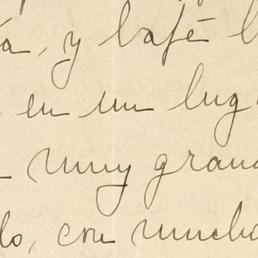 a, y bajé l
en un lug
muy gran
do, con mucho